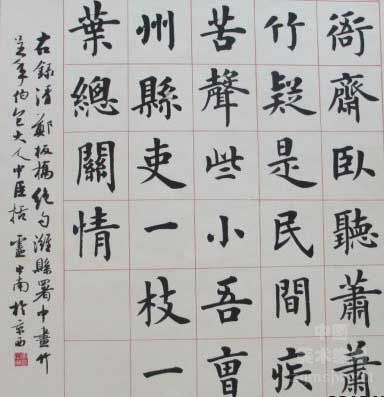 衙齋臥聽蕭蕭
竹疑是民間疾
苦聲些小吾曹
州縣吏一枝一
葉總關情
右錄清鄭板橋絕句濰縣署中畫竹
呈年伯包大人中丞括 盧中南於京西